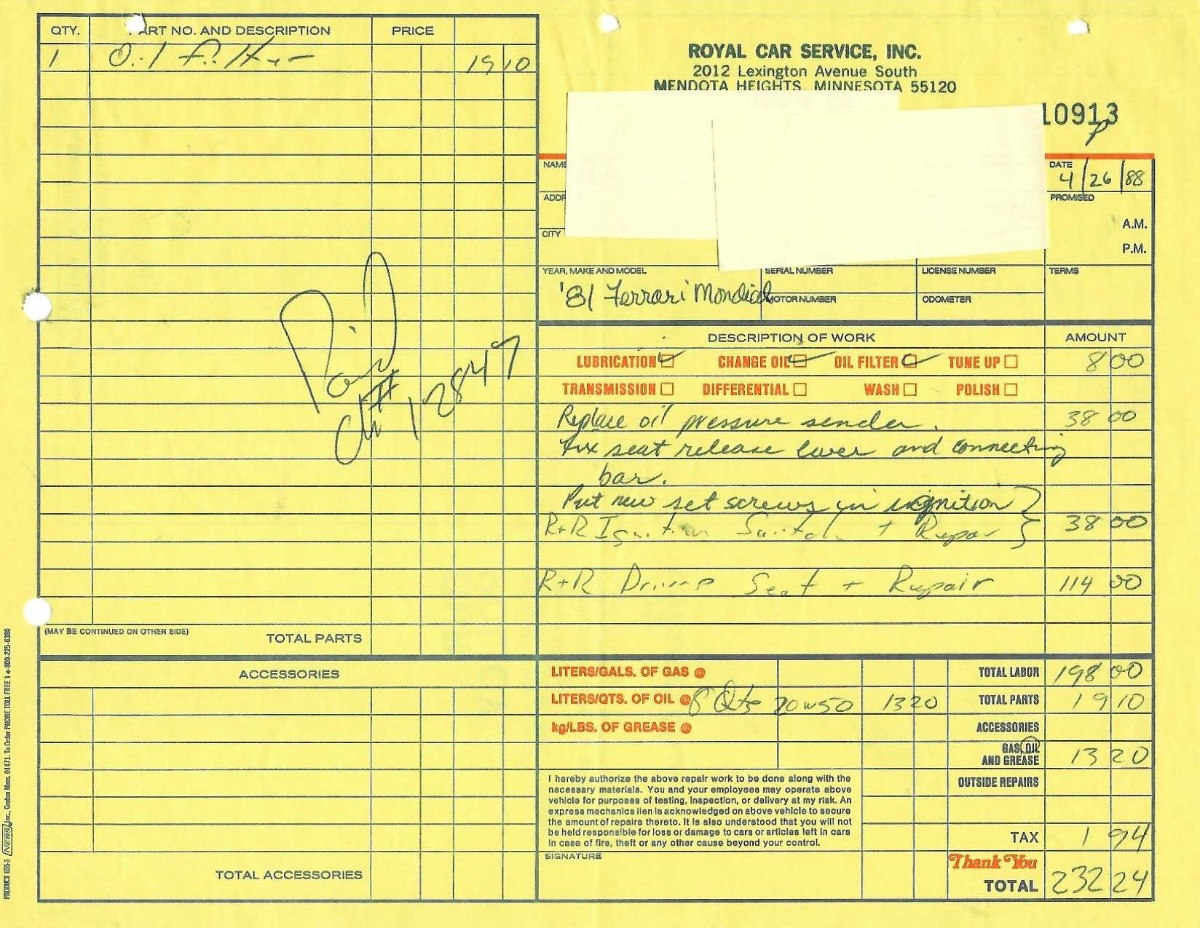 QTY. PART NO. AND DESCRIPTION PRICE
1 Oil filter 19 10
Paid
ch# 12847
(MAY BE CONTINUED ON OTHER SIDE) TOTAL PARTS
ACCESSORIES
TOTAL ACCESSORIES
ROYAL CAR SERVICE, INC.
2012 Lexington Avenue South
MENDOTA HEIGHTS, MINNESOTA 55120
10913
P
NAME
DATE
4/26/88
ADD
PROMISED
CITY
A.M.
P.M.
YEAR, MAKE AND MODEL SERIAL NUMBER LICENSE NUMBER TERMS
'81 Ferrari Mondial MOTOR NUMBER ODOMETER
DESCRIPTION OF WORK AMOUNT
LUBRICATION CHANGE OIL OIL FILTER TUNE UP 8 00
TRANSMISSION DIFFERENTIAL WASH POLISH
Replace oil pressure sender. 38 00
Fix seat release liver and connecting
bar.
Put new set screws in ignition
R+R Ignition Switch + Repair 38 00
R+R Drivers Seat + Repair 114 00
LITERS/GALS. OF GAS @ TOTAL LABOR 198 00
LITERS/QTS. OF OIL @ 8 Qts 20W50 13 20 TOTAL PARTS 19 10
kg/LBS. OF GREASE @ ACCESSORIES
GAS, OIL
AND GREASE 13 20
I hereby authorize the above repair work to be done along with the
necessary materials. You and your employees may operate above
vehicle for purposes of testing, inspection, or delivery at my risk. An
express mechanics lien is acknowledged on above vehicle to secure
the amount of repairs thereto. It is also understood that you will not
be held responsible for loss or damage to cars or articles left in care
in case of fire, theft or any other cause beyond your control.
SIGNATURE
OUTSIDE REPAIRS
TAX 1 94
Thank You
TOTAL 232 24
PRODUCT 655-3 NEBS Inc., Groton, Mass. 01471. To Order PHONE TOLL FREE 1 + 800-225-6380